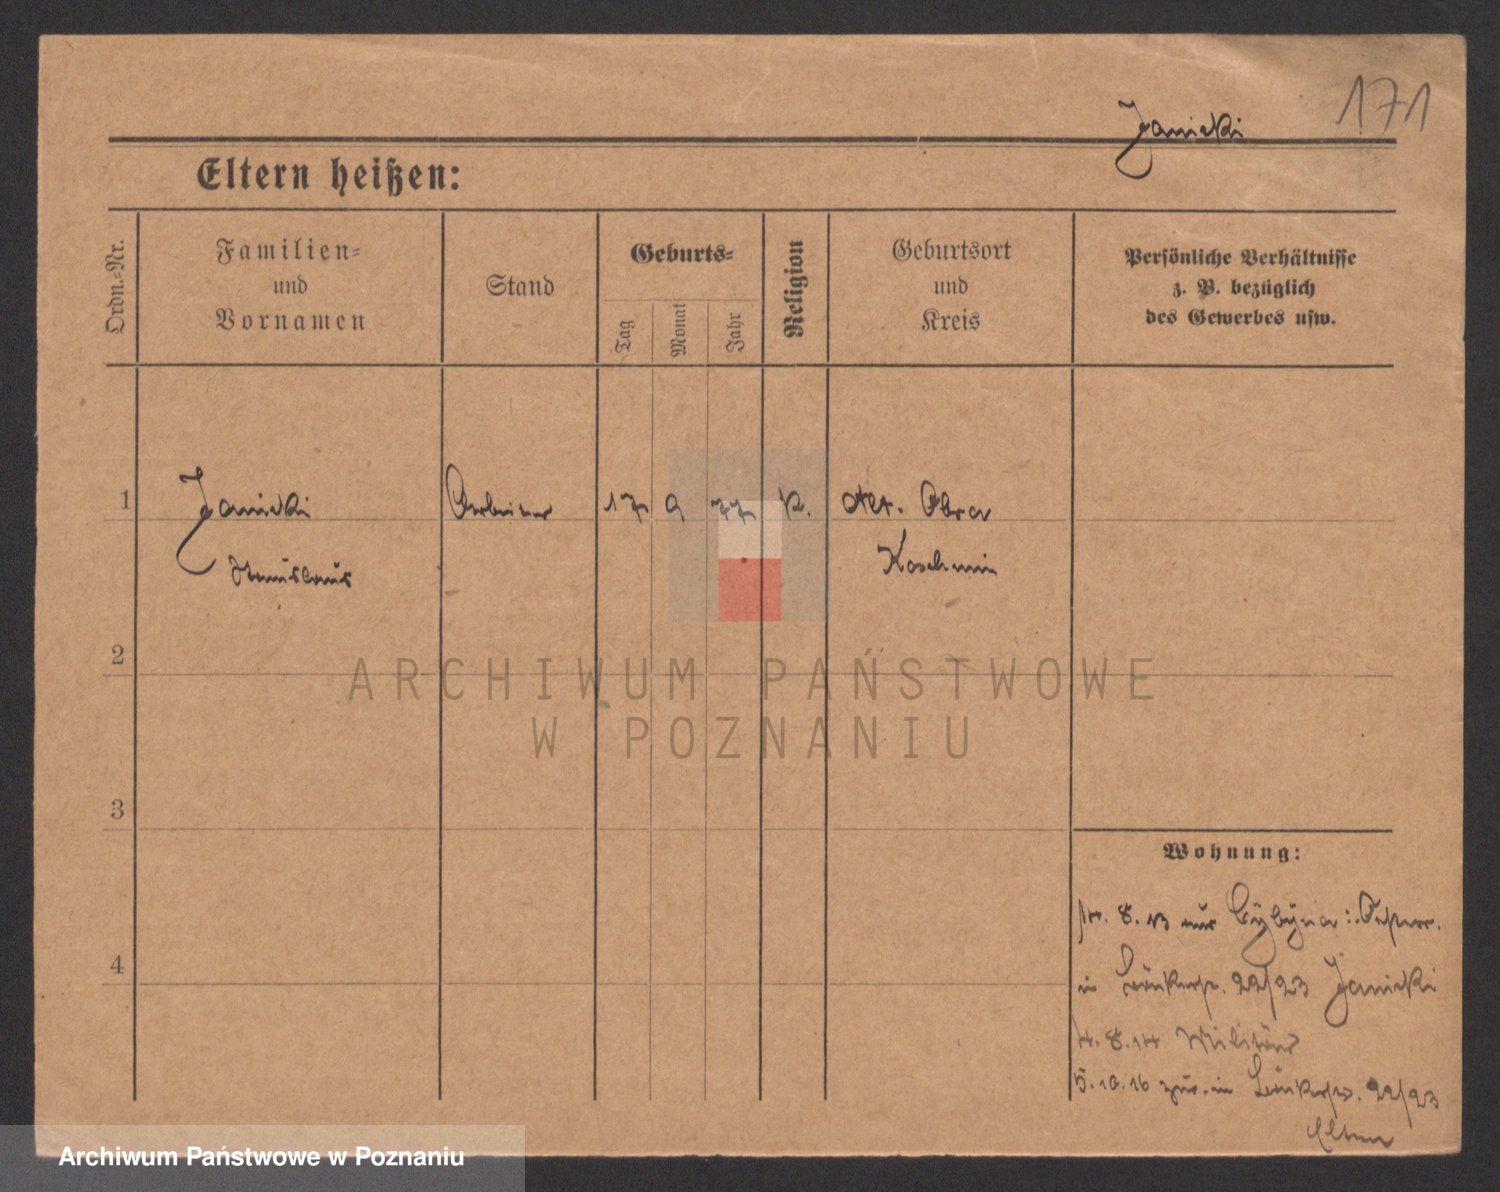 171
Janicki
Eltern heißen:
Ordn.-Nr.
Familien-
und
Vornamen
Stand
Geburts-
Tag
Monat
Jahr
Religion
Geburtsort
und
Kreis
Persönliche Verhältnisse
z. B. bezüglich
des Gewerbes usw.
1 Janicki Arbeiter 17 9 77 K. Alt. Obra
Stanislaus Koschmin
2
ARCHIWUM PAŃSTWOWE
W POZNANIU
3
4
Wohnung:
8. 13 aus Cybyna:
in 22/23 Janicki
4. 8. 14 Militär
5. 10. 16 zur. in 22/23
Eltern
Archiwum Państwowe w Poznaniu